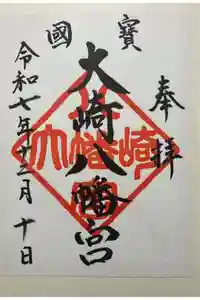 奉拝
國寶
大崎八幡宮
令和七年十二月十日
大崎八幡宮